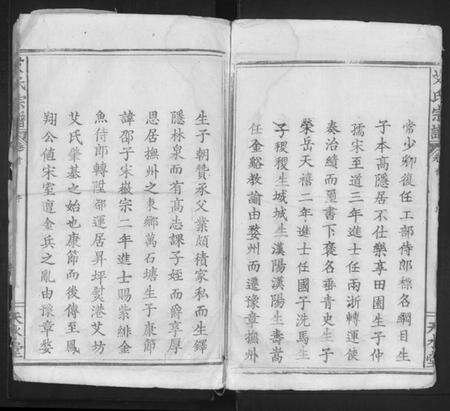 常少卿復任工部侍郎標名綱目生
子本高隱居不仕樂享田園生子仲
孺宋至道三年進士任兩浙轉運使
奏治績而璽書下褒名垂青史生子
榮岳天禧二年進士任國子洗馬生
子稷稷生城城生漢陽漢陽生壽嵩
任金谿教諭由婺州而遷豫章撫州
生子朝贊承父業頗積家私而生鐸
隱林泉而有高志課子姪而爵享厚
恩居撫州之東鄉萬石塘生子康節
諱邵子宋嶽宗二年進士賜紫緋金
魚侍郎轉陞邵運居昇坪熨港艾坊
艾氏肇基之始也康節而後傳至鳳
翔公值宋室遭金兵之亂由豫章婺
艾氏宗譜
天水堂